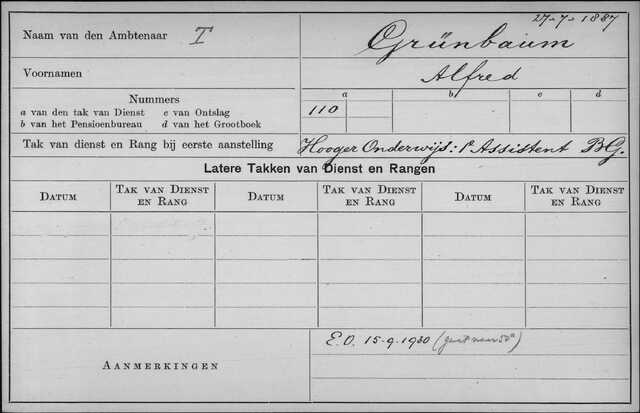 27-7-1887
Naam van den Ambtenaar I Grünbaum
Voornamen Alfred
Nummers a b c d
a van den tak van Dienst c van Ontslag 110
b van het Pensioenbureau d van het Grootboek
Tak van dienst en Rang bij eerste aanstelling Hooger Onderwijs: 1e Assistent B.G.
Latere Takken van Dienst en Rangen
Datum Tak van Dienst en Rang Datum Tak van Dienst en Rang Datum Tak van Dienst en Rang
E.O. 15-9-1930
Aanmerkingen